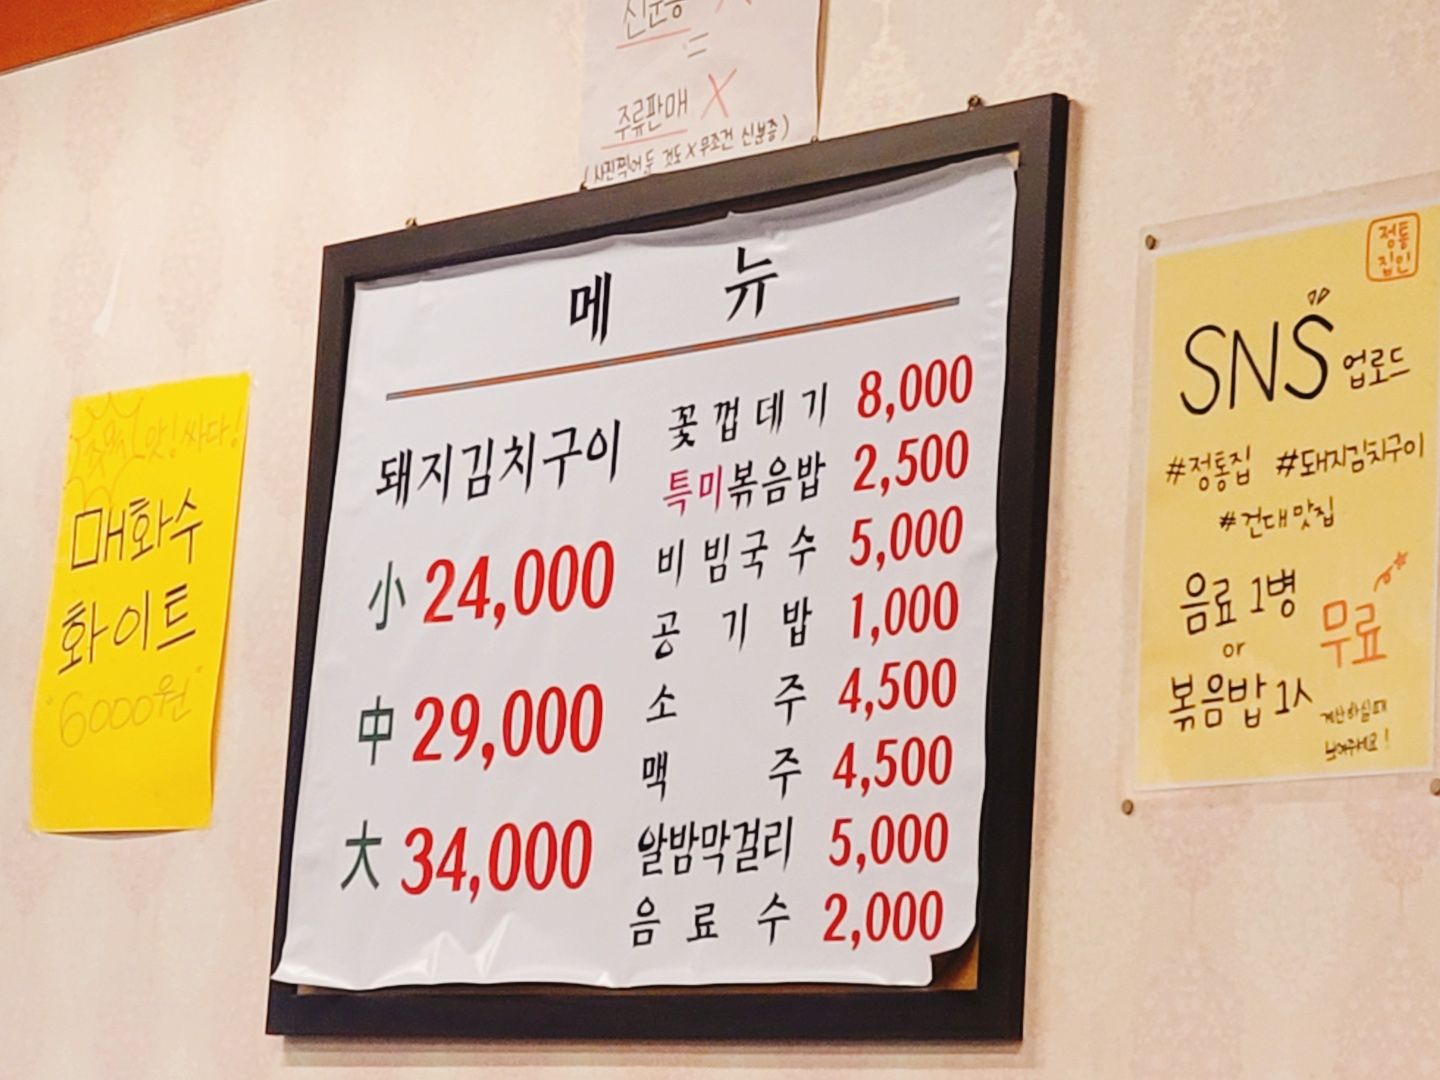 신분증 X
=
주류판매 X
(사진찍어둔 것도 X 무조건 신분증)
메 뉴
돼지김치구이
小 24,000
中 29,000
大 34,000
꽃껍데기 8,000
특미볶음밥 2,500
비빔국수 5,000
공기밥 1,000
소주 4,500
맥주 4,500
알밤막걸리 5,000
음료수 2,000
맛! 싸다!
매화수
화이트
"6000원"
정통
집인
SNS 업로드
#정통집 #돼지김치구이
#건대맛집
음료 1병
or
볶음밥 1人
무료
계산하실때
보여주세요!